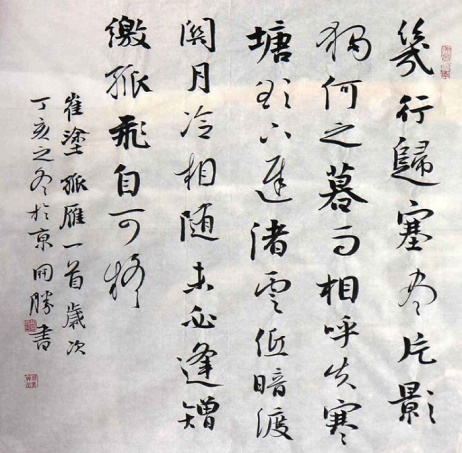 幾行歸塞盡片影
獨何之暮雨相呼失寒
塘欲下遲渚雲低暗渡
關月冷相隨未必逢矰
繳孤飛自可疑
崔塗孤雁一首歲次
丁亥之冬於京勝書